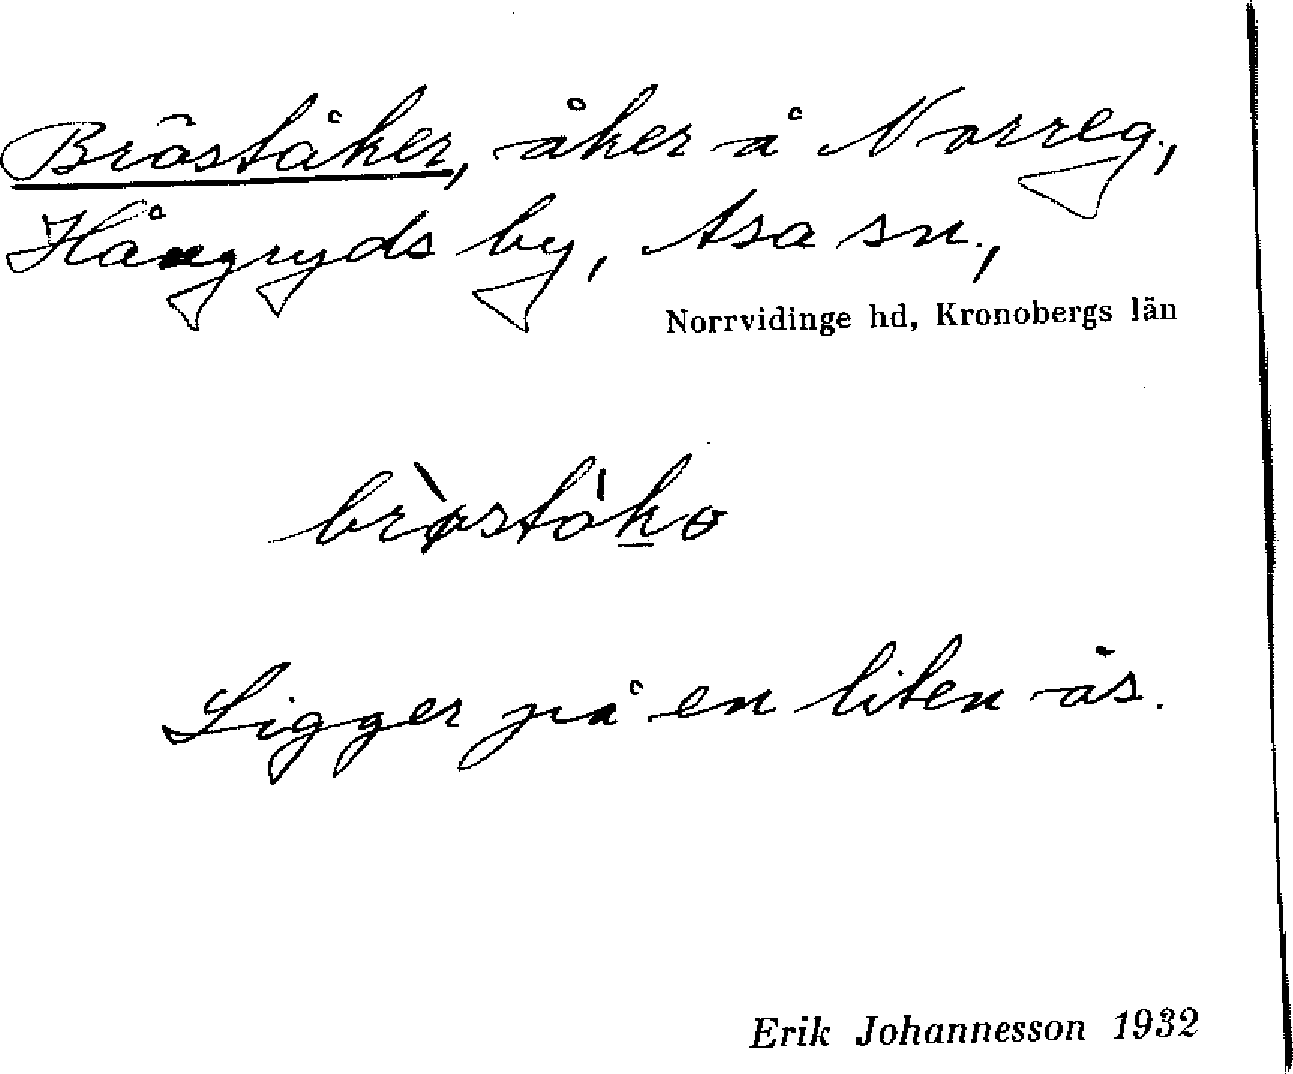 Bröståker, åker å Norreg.,
Hångryds by, Asa sn.,
Norrvidinge hd, Kronobergs län
brø̀ståko
Ligger på en liten ås.
Erik Johannesson 1932